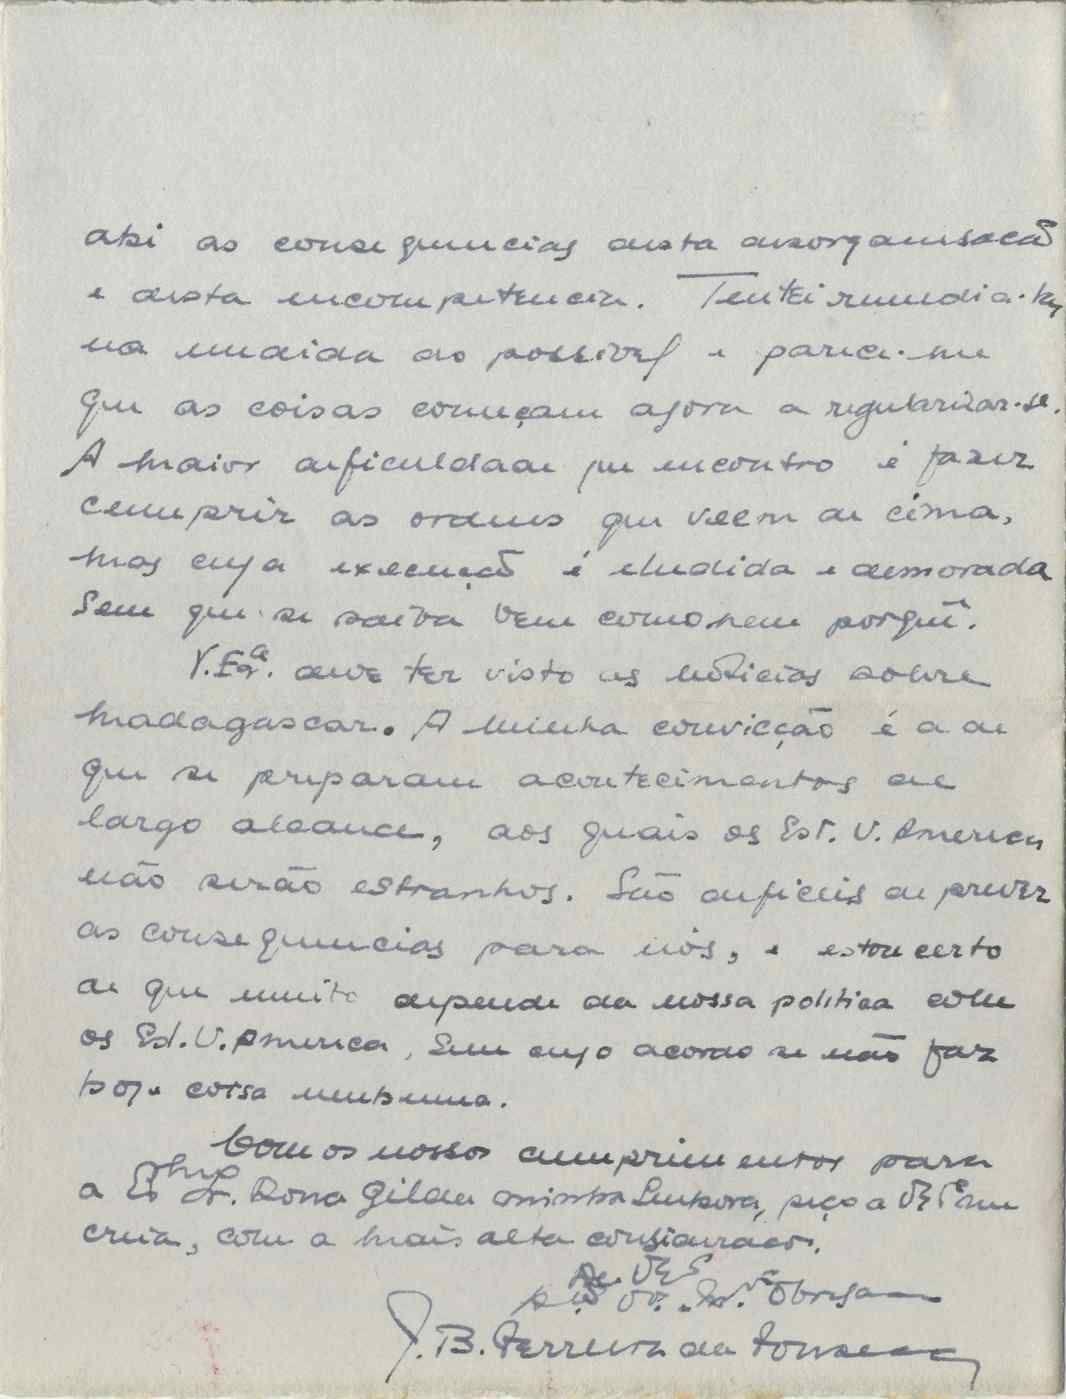 ahi as consequencias desta desorganisação
e desta incompetencia. Tentei remedia-las
na medida do possivel e parece-me
que as coisas começam agora a regularizar-se.
A maior dificuldade que encontro é fazer
cumprir as ordens que veem de cima,
mas cuja execução é eludida e demorada
sem que se saiba bem como nem porquê.
V. Exa. deve ter visto as noticias sobre
Madagascar. A minha convicção é a de
que se preparam acontecimentos de
largo alcance, aos quais os Est. U. America
não serão estranhos. São dificeis de prever
as consequencias para nós, e estou certo
de que muito depende da nossa politica com
os Est. U. America, sem cujo acordo se não faz
hoje coisa nenhuma.
Com os nossos cumprimentos para
a Dona Gilda minha Senhora, peço a V. E me
creia, com a mais alta consideração,
De V. E
Obrigado
J. B. Ferreira da Fonseca